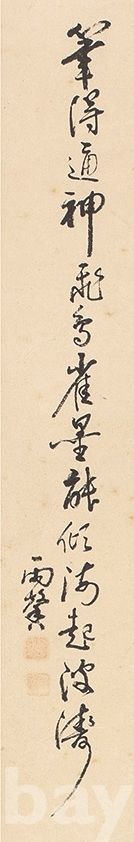 筆得通神飛鳥雀墨能傾海起波濤
雨巖
bay